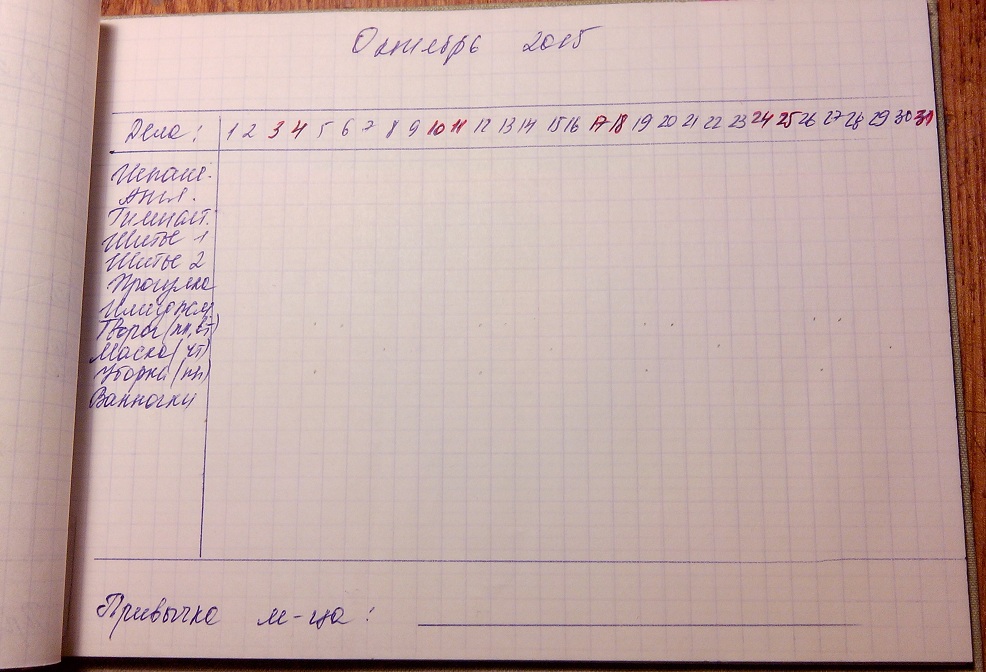 Октябрь 2015
Дела: 1 2 3 4 5 6 7 8 9 10 11 12 13 14 15 16 17 18 19 20 21 22 23 24 25 26 27 28 29 30 31
Испанс.
Англ.
Гимнаст.
Шитьё 1
Шитьё 2
Прогулка
Имидж
Творог (пн, вт)
Маска (чт)
Уборка (пн)
Ванночки
Привычка м-ца: